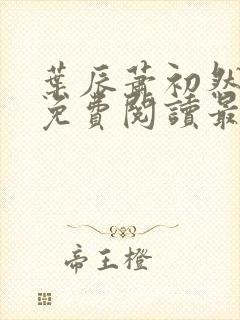 葉辰蕭初然
免費閱讀最
帝王橙